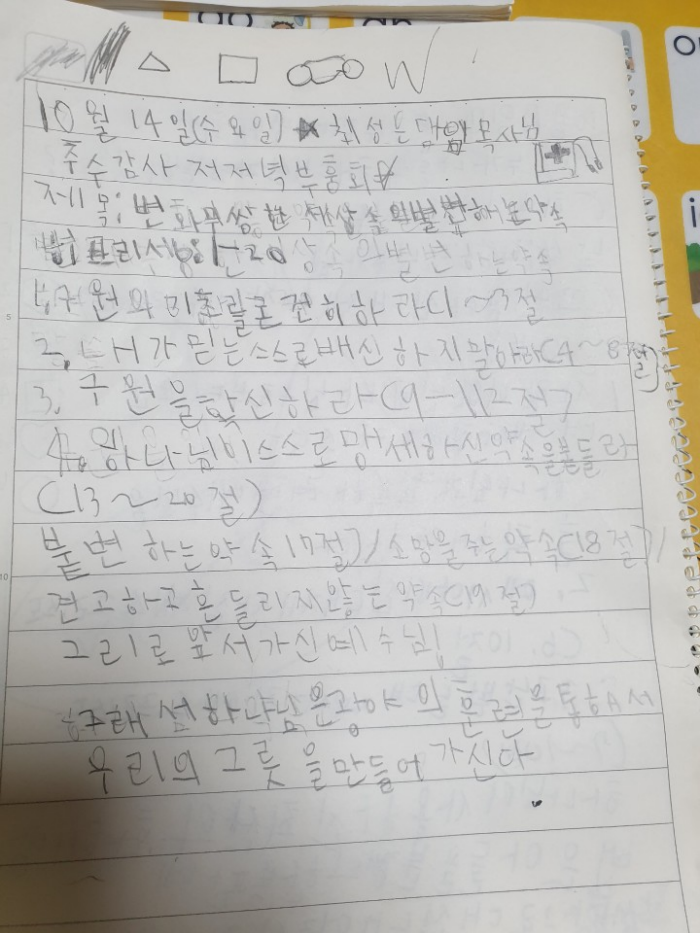 W
10월 14일(수요일) 최성은 담임목사님
추수감사 저저녁부흥회
제목: 변화무쌍한 세상 속 약속
히브리서 6:1-20
1. 구원와 전하라(1~3절
2, 내가 믿는 스스로 배신하지 말아라(4~8절)
3. 구원을 확신하라(9-12절)
4. 하나님이 스스로 맹세하신 약속을 붙들라
(13~20절)
불변하는 약속 17절)/소망을 주는 약속(18절)/
견고하고 흔들리지 않는 약속(19절)
그리로 앞서가신 예수님!
광야의 훈련을 통하서
우리의 그릇을 만들어 가신다